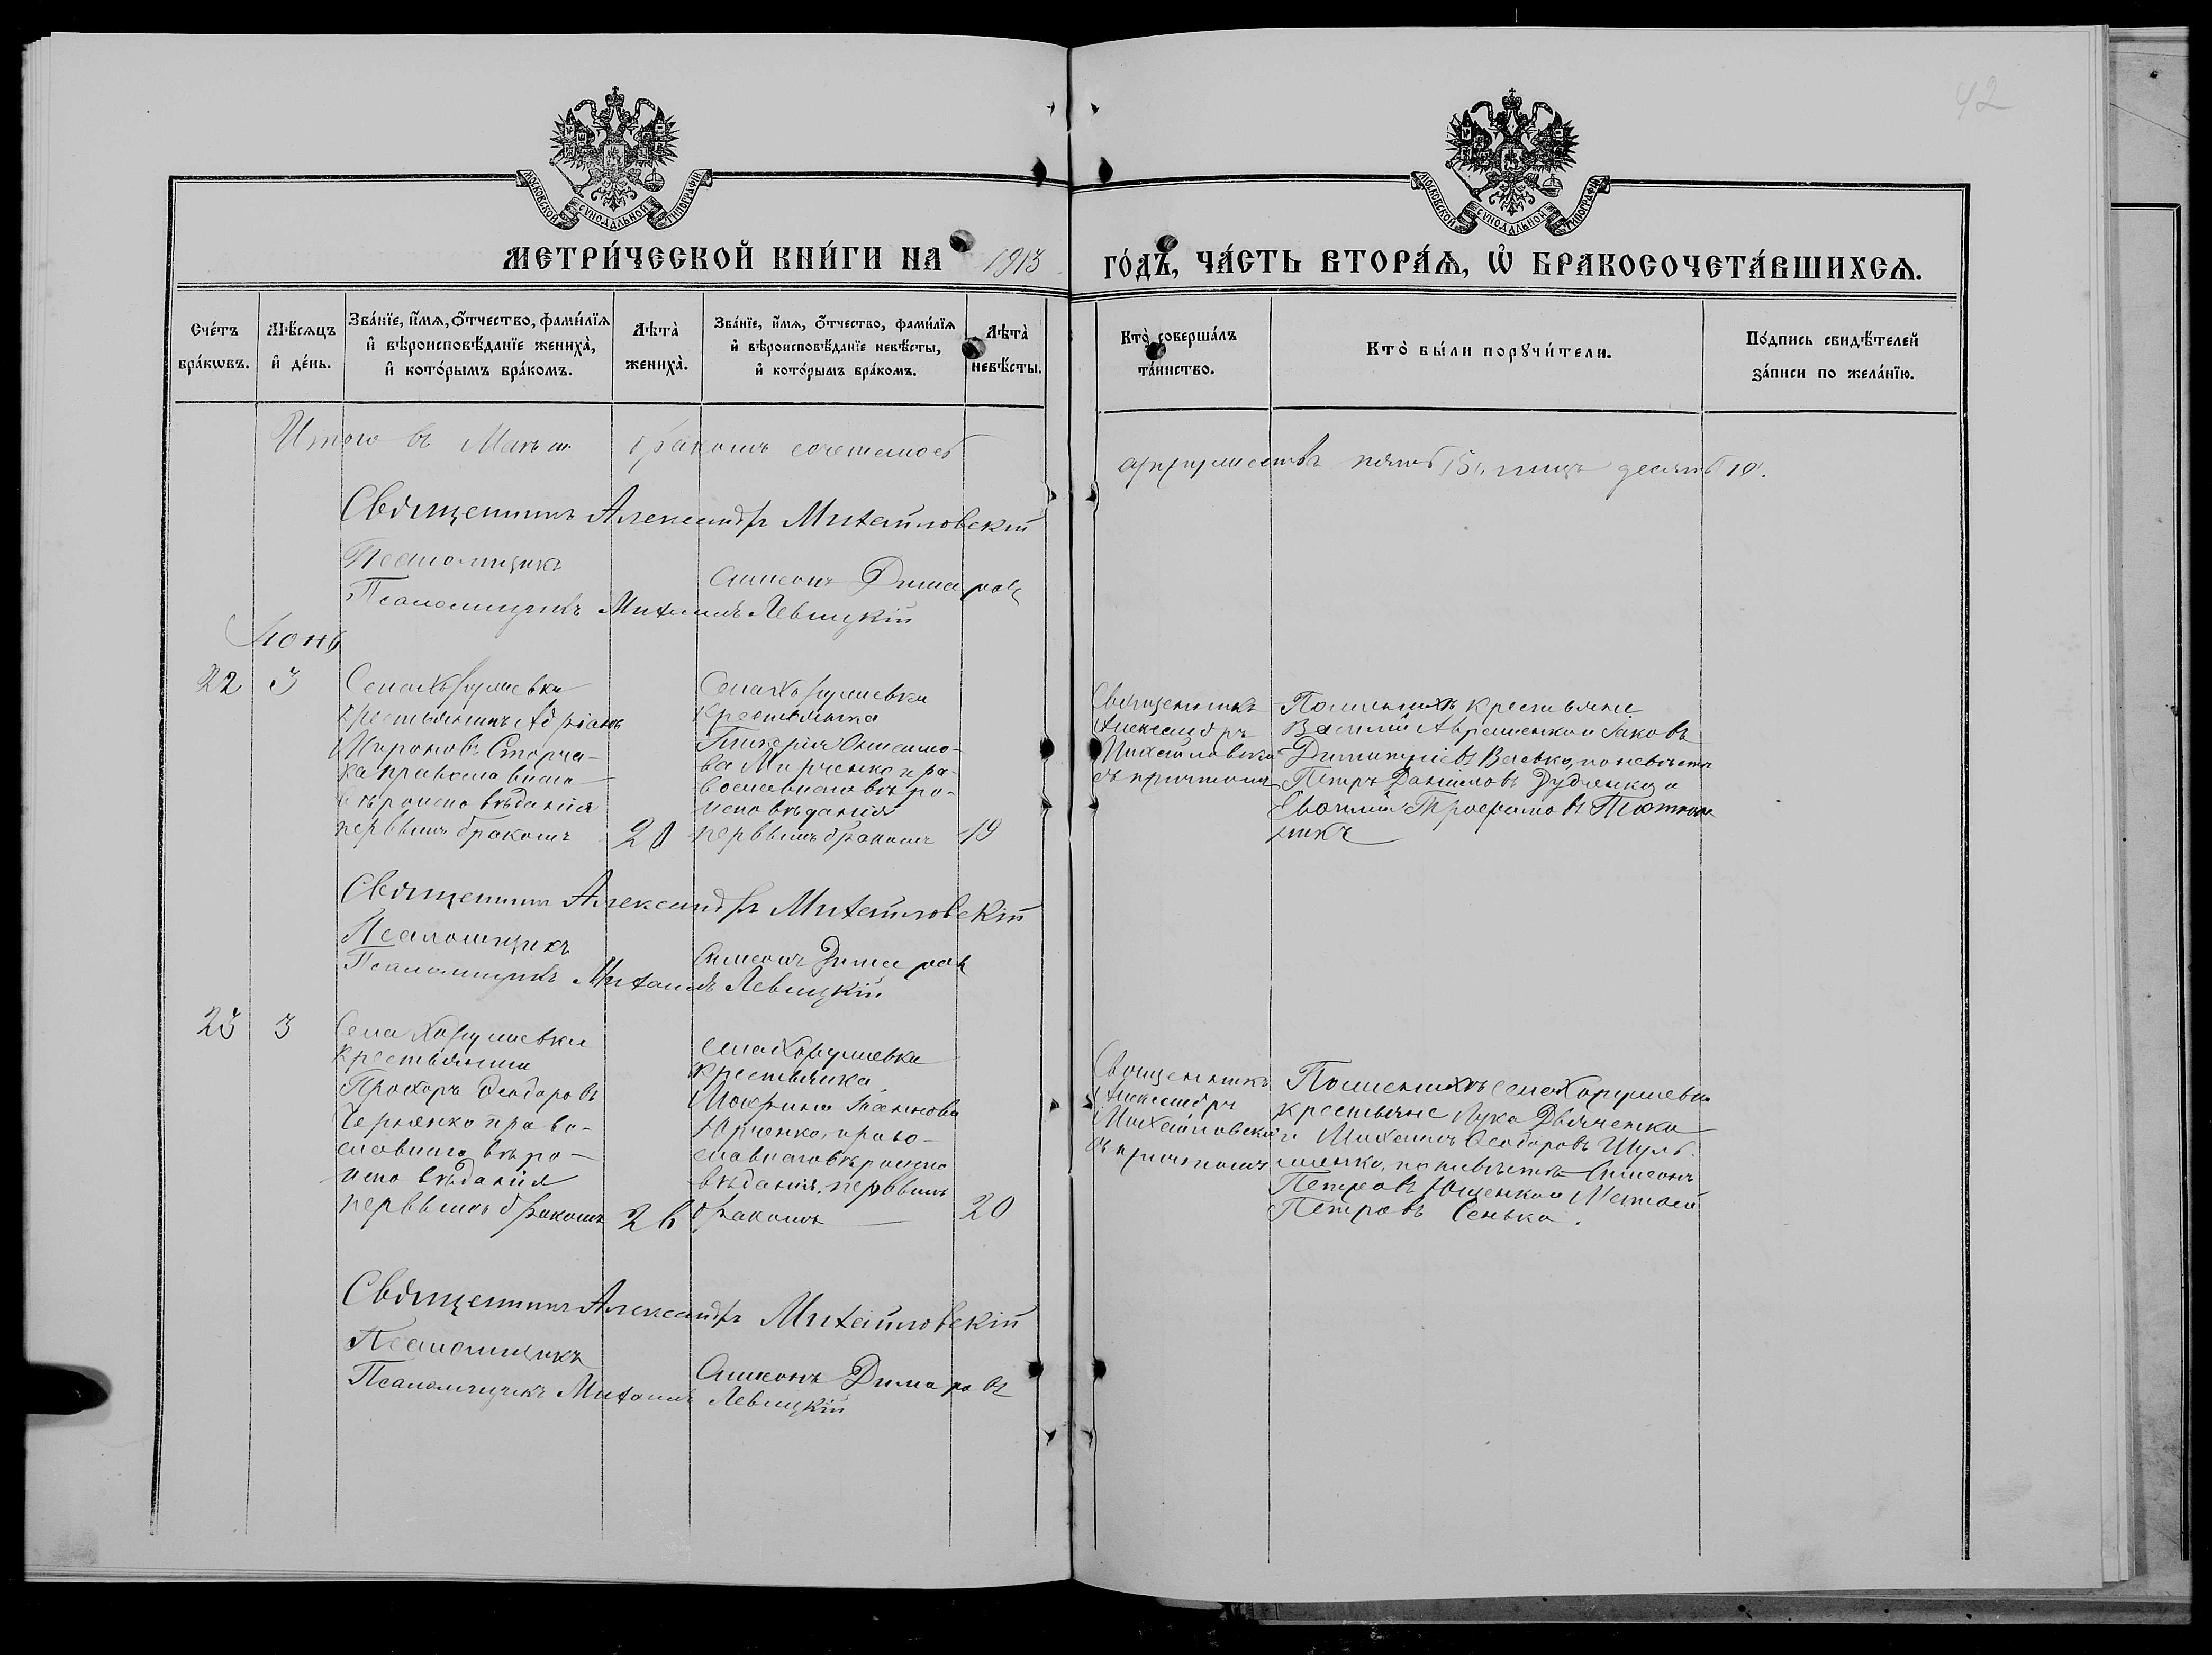 42
МОСКОВСКОЙ СѴНОДАЛЬНОЙ ТИПОГРАФІИ
МОСКОВСКОЙ СѴНОДАЛЬНОЙ ТИПОГРАФІИ
МЕТРИ́ЧЕСКОЙ КНИ́ГИ НА 1913 ГО́ДЪ, ЧА́СТЬ ВТОРА́Ѧ, Ѡ БРАКОСОЧЕТА́ВШИХСѦ.
Сче́тъ бра́кѡвъ.
Мѣ́сѧцъ и҆ де́нь.
Зва́нїе, и҆́мѧ, ѻ҆́тчество, фамѝлїѧ и҆ вѣроисповѣ́данїе жениха̀, и҆ кото́рымъ бра́комъ.
Лѣта̀ жениха̀.
Зва́нїе, и҆́мѧ, ѻ҆́тчество, фамѝлїѧ и҆ вѣроисповѣ́данїе невѣ́сты, и҆ кото́рымъ бра́комъ.
Лѣта̀ невѣ́сты.
Кто̀ соверша́лъ та́инство.
Кто̀ бы́ли порꙋчи́тели.
По́дпись свидѣ́телей за́писи по жела́нїю.
Итого въ Маѣ м. бракомъ сочеталось супружествъ пять 5, лицъ десять 10.
Священникъ Александръ Михайловскій
Псаломщикъ Симеонъ Димаровъ
Псаломщикъ Михаилъ Левицкій
Іюнь
22
3
Села Хоружевки
крестьянинъ Адріанъ
Мироновъ Сторча-
ка православнаго
вѣроисповѣданія
первымъ бракомъ
20
Села Хоружевки
крестьянка
Гликерія
ва Марченко пра-
вославнаго вѣро-
исповѣданія
первымъ бракомъ
19
Священникъ
Александръ
Михайловскій
съ причтомъ
По женихѣ крестьяне
Василій Авраменко и Іаковъ
Димитріевъ Васько, по невѣстѣ
Петръ Даніиловъ Дудченко и
Евѳимій Трофимовъ Плотни-
никъ
Священникъ Александръ Михайловскій
Псаломщикъ Симеонъ Димаровъ
Псаломщикъ Михаилъ Левицкій
23
3
Села Хоружевки
крестьянинъ
Прохоръ Ѳеодоровъ
Чернянко право-
славнаго вѣро-
исповѣданія
первымъ бракомъ
26
села Хоружевки
крестьянка
Мокрина Іоаннова
Юрченко, право-
славнаго вѣроиспо-
вѣданія, первымъ
бракомъ
20
Священникъ
Александръ
Михайловскій
съ причтомъ
По женихѣ села Хоружевки
крестьяне Лука Дьяченко
и Михаилъ Ѳеодоровъ Шуль-
женко, по невѣстѣ Симеонъ
Петровъ Ющенко и Матѳей
Петровъ Сенько.
Священникъ Александръ Михайловскій
Псаломщикъ Симеонъ Димаровъ
Псаломщикъ Михаилъ Левицкій